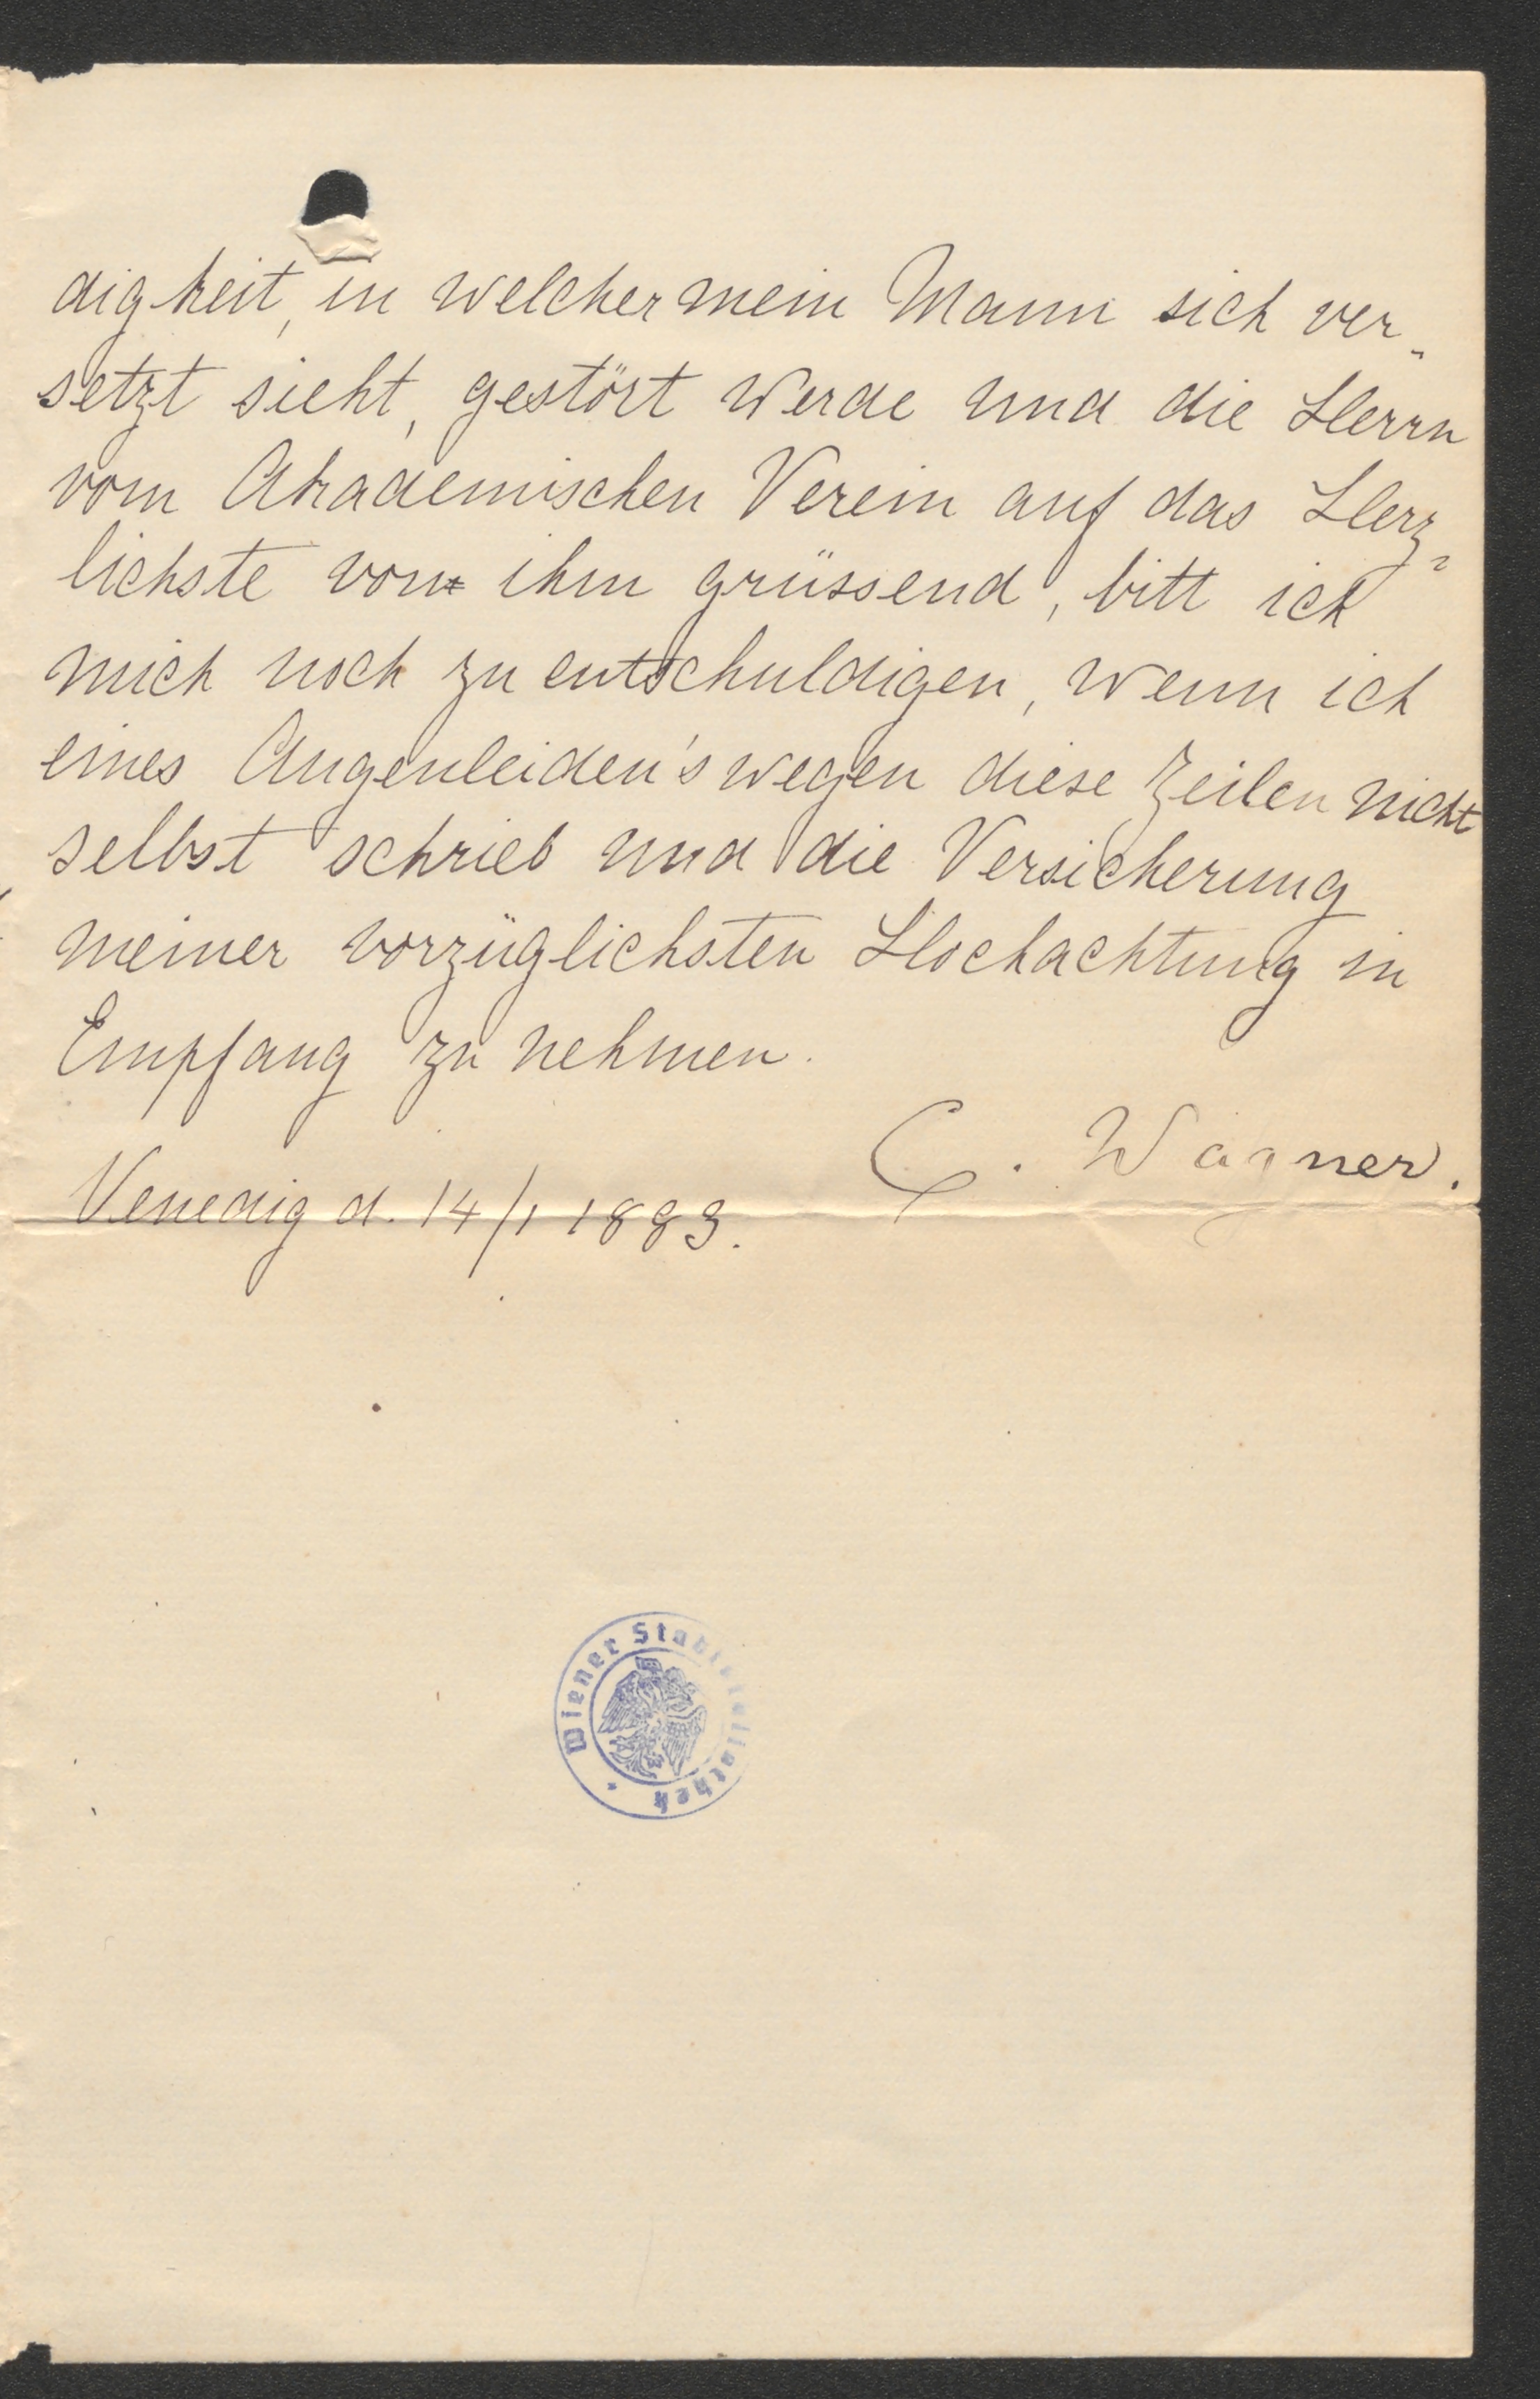 digkeit, in welcher mein Mann sich ver-
setzt sieht, gestört werde und die Herrn
vom Akademischen Verein auf das Herz-
lichste von ihm grüssend, bitt ich
mich noch zu entschuldigen, wenn ich
eines Augenleiden's wegen diese Zeilen nicht
selbst schrieb und die Versicherung
meiner vorzüglichsten Hochachtung in
Empfang zu nehmen.
C. Wagner.
Venedig d. 14/1 1883.
Wiener Stadtbibliothek